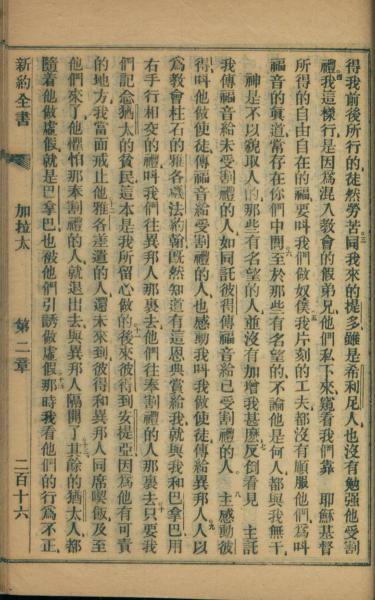 得我前後所行的徒然勞苦同我來的提多雖是希利尼人也沒有勉强他受割
禮我這樣行是因爲混入教會的假弟兄他們私下來窺看我們靠 耶穌基督
所得的自由自在的福要呌我們做奴僕我片刻的工夫都沒有順服他們爲呌
福音的眞道常存在你們中間至於那些有名望的不論他是何人都與我無干
神是不以貌取人的那些有名望的人並沒有加增我甚麽反倒看見 主託
我傳福音給未受割禮的人如同託彼得傳福音給已受割禮的人 主感動彼
得呌他做使徒傳福音給受割禮的人也感動我呌我做使徒傳福音給異邦人人以
爲教會柱石的雅各磯法約翰旣然知道有這恩典賞給我就與我和巴拿巴用
右手行相交的禮呌我們往異邦人那裏去他們往奉割禮的人那裏去只要我
們記念猶太的貧民這本是我所留心做的後來彼得到安提亞因爲他有可責
的地方我當面戒止他雅各差遣的人還未來到彼得和異邦人同席喫飯及至
他們來了他懼怕那奉割禮的人就退出去與異邦人隔開了其餘的猶太人都
隨着他做虛假就是巴拿巴也被他們引誘做虛假那時我看他們的行爲不正
新約全書 加拉太 第二章 二百十六